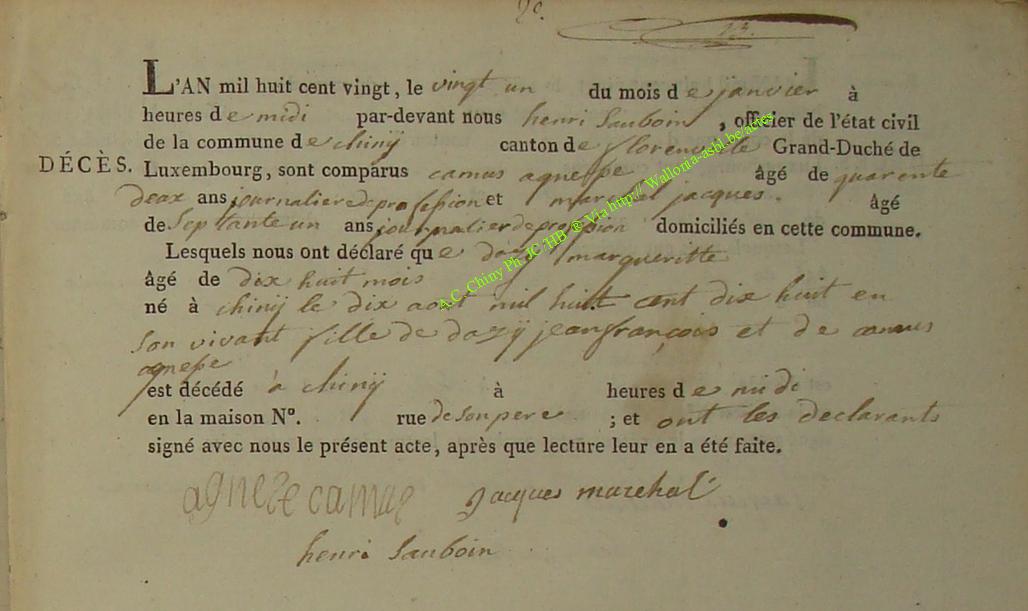 2e.
23.
L'AN mil huit cent vingt, le vingt un du mois de janvier à
heures de midi par-devant nous henri Sauboin, officier de l'état civil
de la commune de chinÿ canton de florenville Grand-Duché de
DÉCÈS. Luxembourg, sont comparus camus agnesse âgé de quarente
deux ans journalier de profession et marchal jacques. âgé
de septante un ans journalier de profession domiciliés en cette commune.
Lesquels nous ont déclaré que dazÿ margueritte
âgé de dix huit mois
né à chinÿ le dix aout mil huit cent dix huit en
son vivant fille de dazÿ jean françois et de camus
agnesse
est décédé à chinÿ à heures de midi
en la maison N°. rue de son pere ; et ont les declarants
signé avec nous le présent acte, après que lecture leur en a été faite.
agnese camus jacques marchal
henri Sauboin
A.C. Chiny Ph. JC HB ® Via http://Wallonia-asbl.be/actes